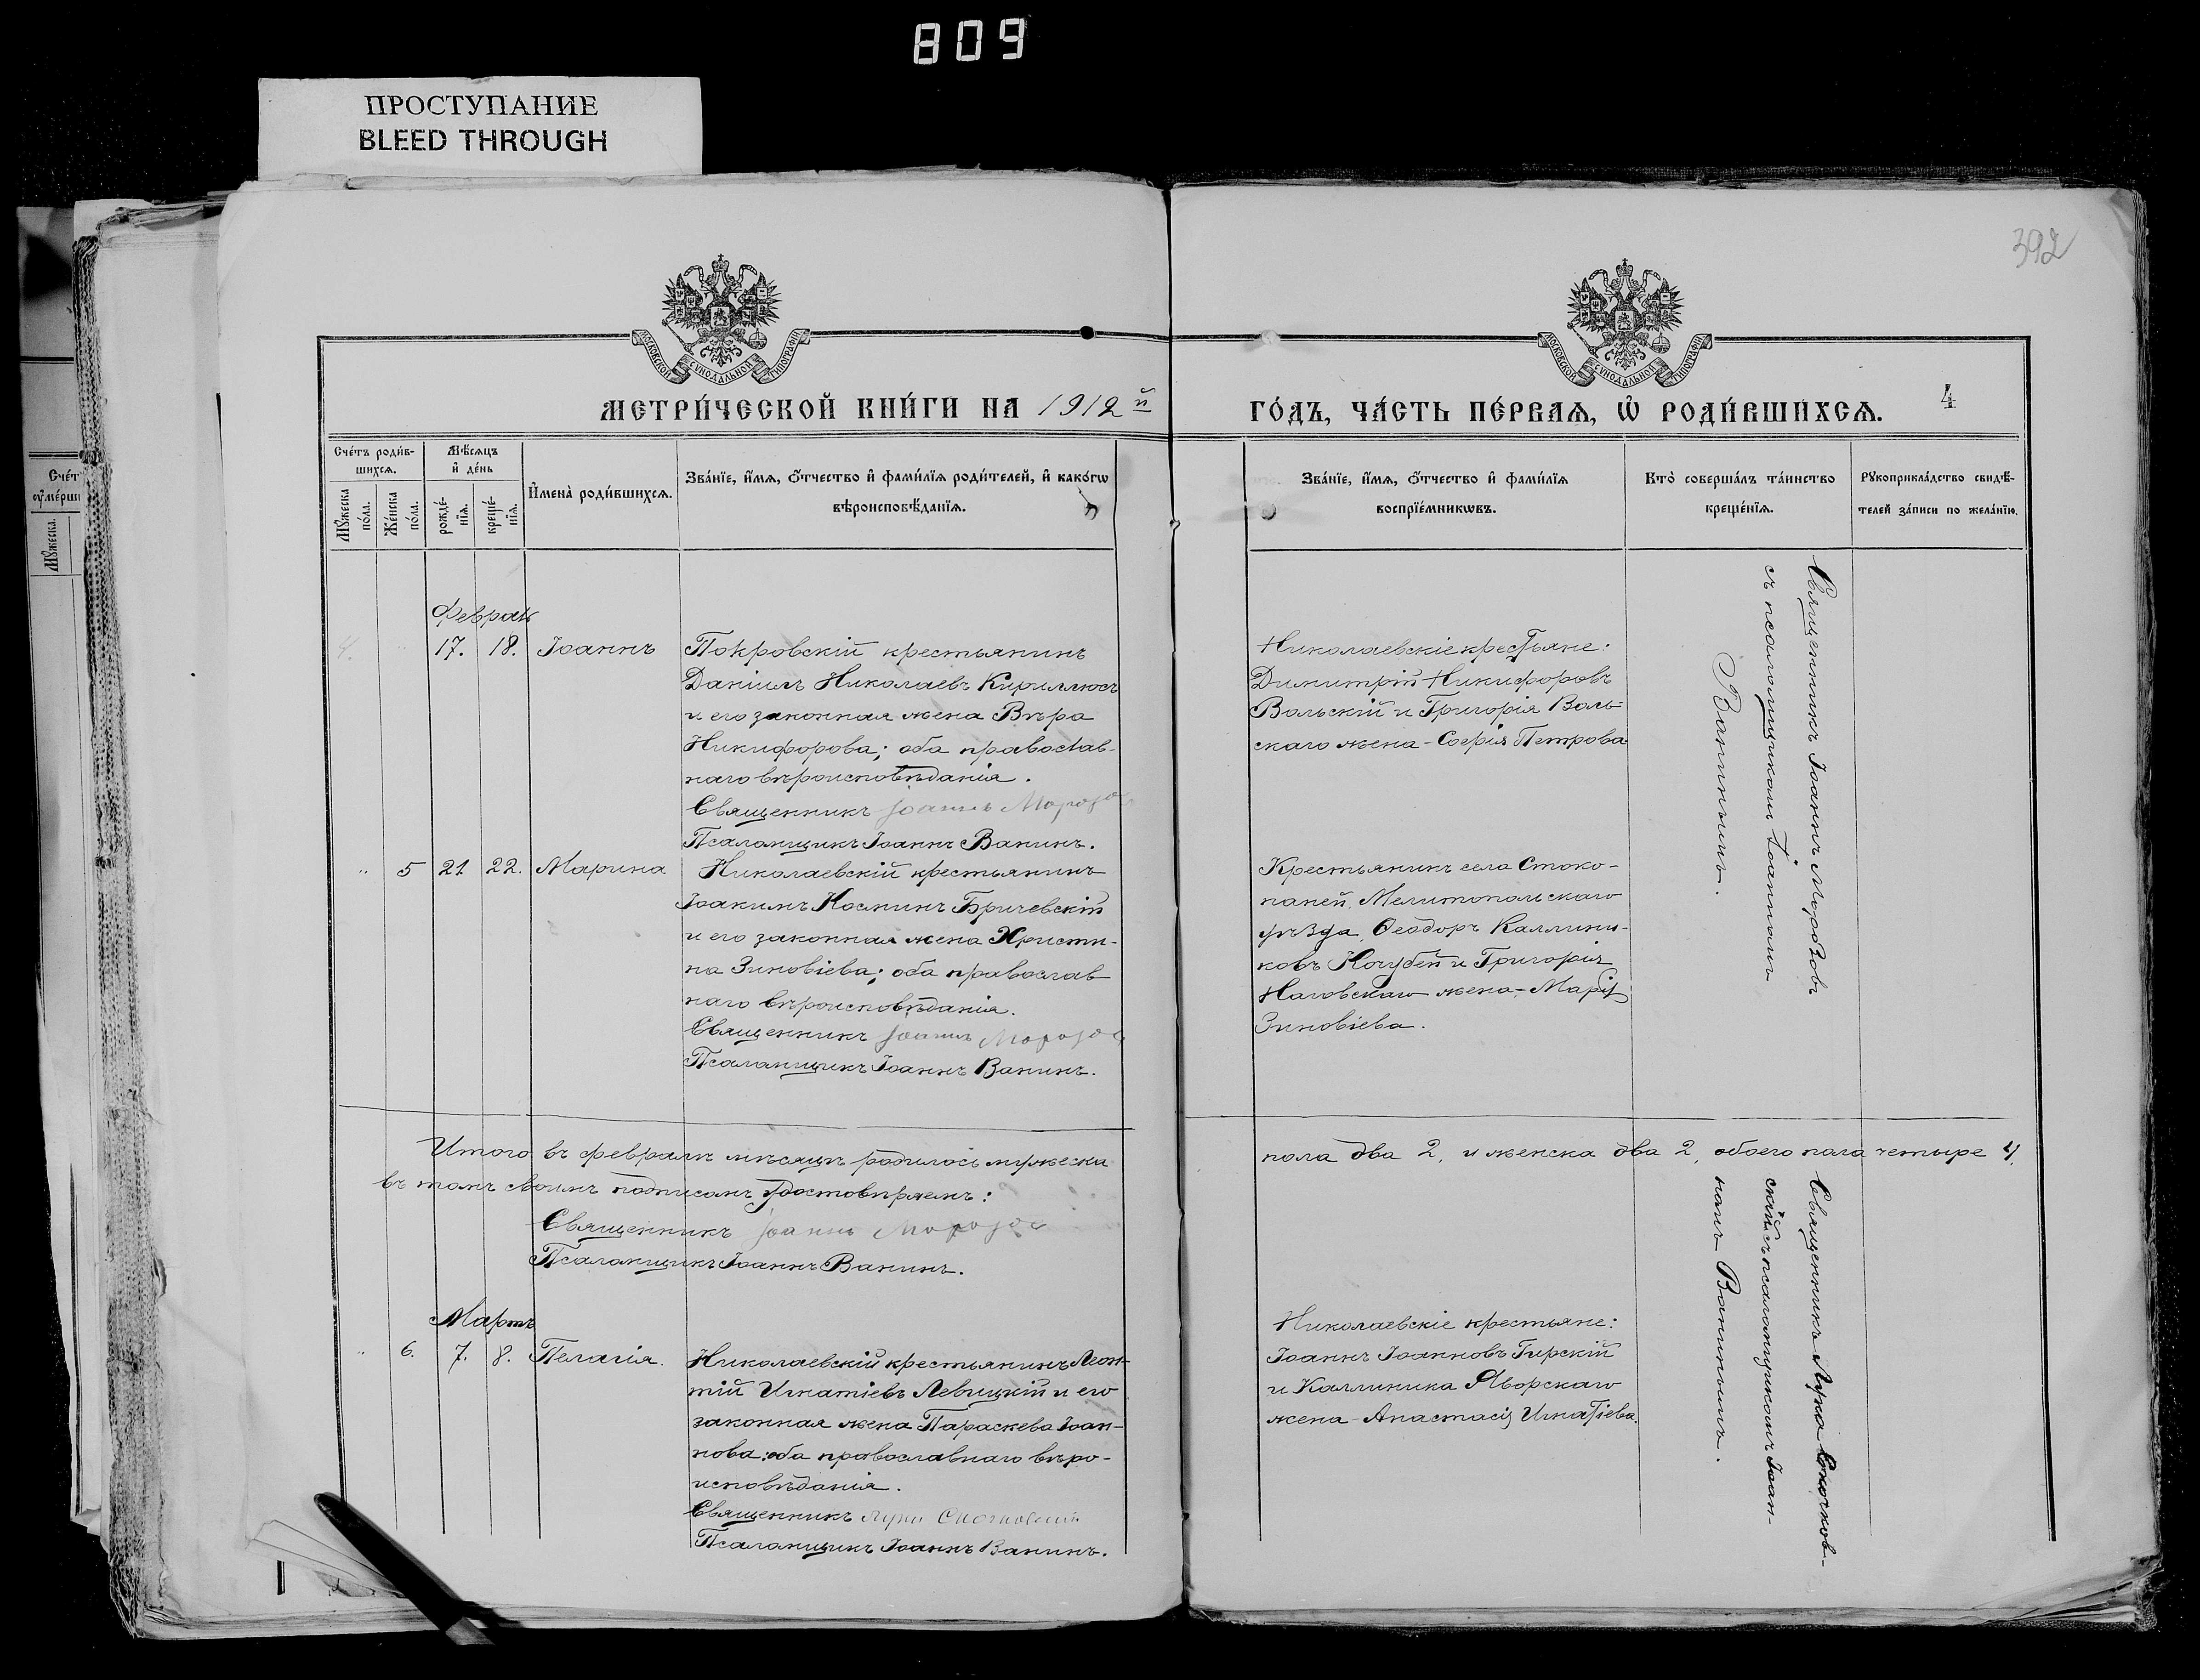 809
ПРОСТУПАНИЕ
BLEED THROUGH
392
МОСКОВСКОЙ СѴНОДАЛЬНОЙ ТИПОГРАФІИ
МОСКОВСКОЙ СѴНОДАЛЬНОЙ ТИПОГРАФІИ
МЕТРИ́ЧЕСКОЙ КНИ́ГИ НА 1912й
ГО́ДЪ, ЧА́СТЬ ПЕ́РВАѦ, Ѽ РОДИ́ВШИХСѦ. 4
Сче́тъ роди́в-
шихсѧ.
Мѣ́сѧцъ
и҆ де́нь
Мꙋ́жеска
по́ла.
Же́нска
по́ла.
рожде́-
нїѧ.
креще́-
нїѧ.
И҆мена̀ роди́вшихсѧ.
Зва́нїе, и҆́мѧ, ѻ҆́тчество и҆ фами́лїѧ роди́телей, и҆ како́гѡ
вѣроисповѣ́данїѧ.
Зва́нїе, и҆́мѧ, ѻ҆́тчество и҆ фами́лїѧ
воспрїе́мникѡвъ.
Кто̀ соверша́лъ та́инство
креще́нїѧ.
Рꙋкоприкла́дство свидѣ́-
телей за́писи по жела́нїю.
Сче́т
ᲂу҆ме́рши
Мꙋ́жеска.
Февраль
4. " 17. 18. Іоаннъ
Покровскій крестьянинъ
Даніилъ Николаевъ Кириллюсъ
и его законная жена Вѣра
Никифорова; оба православ-
наго вѣроисповѣданія.
Священникъ Іоаннъ Морозов
Псаломщикъ Іоаннъ Ванинъ.
Николаевскіе крестьяне:
Димитрій Никифоровъ
Вольскій и Григорія Воль-
скаго жена - Софія Петрова
Священникъ Іоаннъ Морозовъ
съ псаломщикомъ Іоанномъ
Ванинымъ.
" 5 21 22. Марина
Николаевскій крестьянинъ
Іоакимъ Косминъ Бричевскій
и его законная жена Христи-
на Зиновіева; оба православ
наго вѣроисповѣданія.
Священникъ Іоаннъ Морозов
Псаломщикъ Іоаннъ Ванинъ.
Крестьянинъ села Стоко-
паней, Мелитопольскаго
уѣзда, Ѳеодоръ Каллини-
ковъ Кочубей и Григорія
Наговскаго жена - Марія
Зиновіева.
Итого въ февралѣ мѣсяцѣ родилось мужеска
пола два 2, и женска два 2, обоего пола четыре 4,
въ томъ своимъ подписомъ удостовѣряемъ:
Священникъ Іоаннъ Морозов
Псаломщикъ Іоаннъ Ванинъ.
Мартъ
" 6. 7. 8. Пелагія.
Николаевскій крестьянинъ Леон-
тій Игнатіевъ Левицкій и его
законная жена Параскева Іоан-
нова; оба православнаго вѣро-
исповѣданія.
Священникъ Лука Скочковскій
Псаломщикъ Іоаннъ Ванинъ.
Николаевскіе крестьяне:
Іоаннъ Іоанновъ Гирскій
и Каллиника Яворскаго
жена - Анастасія Игнатіева.
Священникъ Лука Скочков-
скій съ псаломщикомъ Іоан-
номъ Ванинымъ.